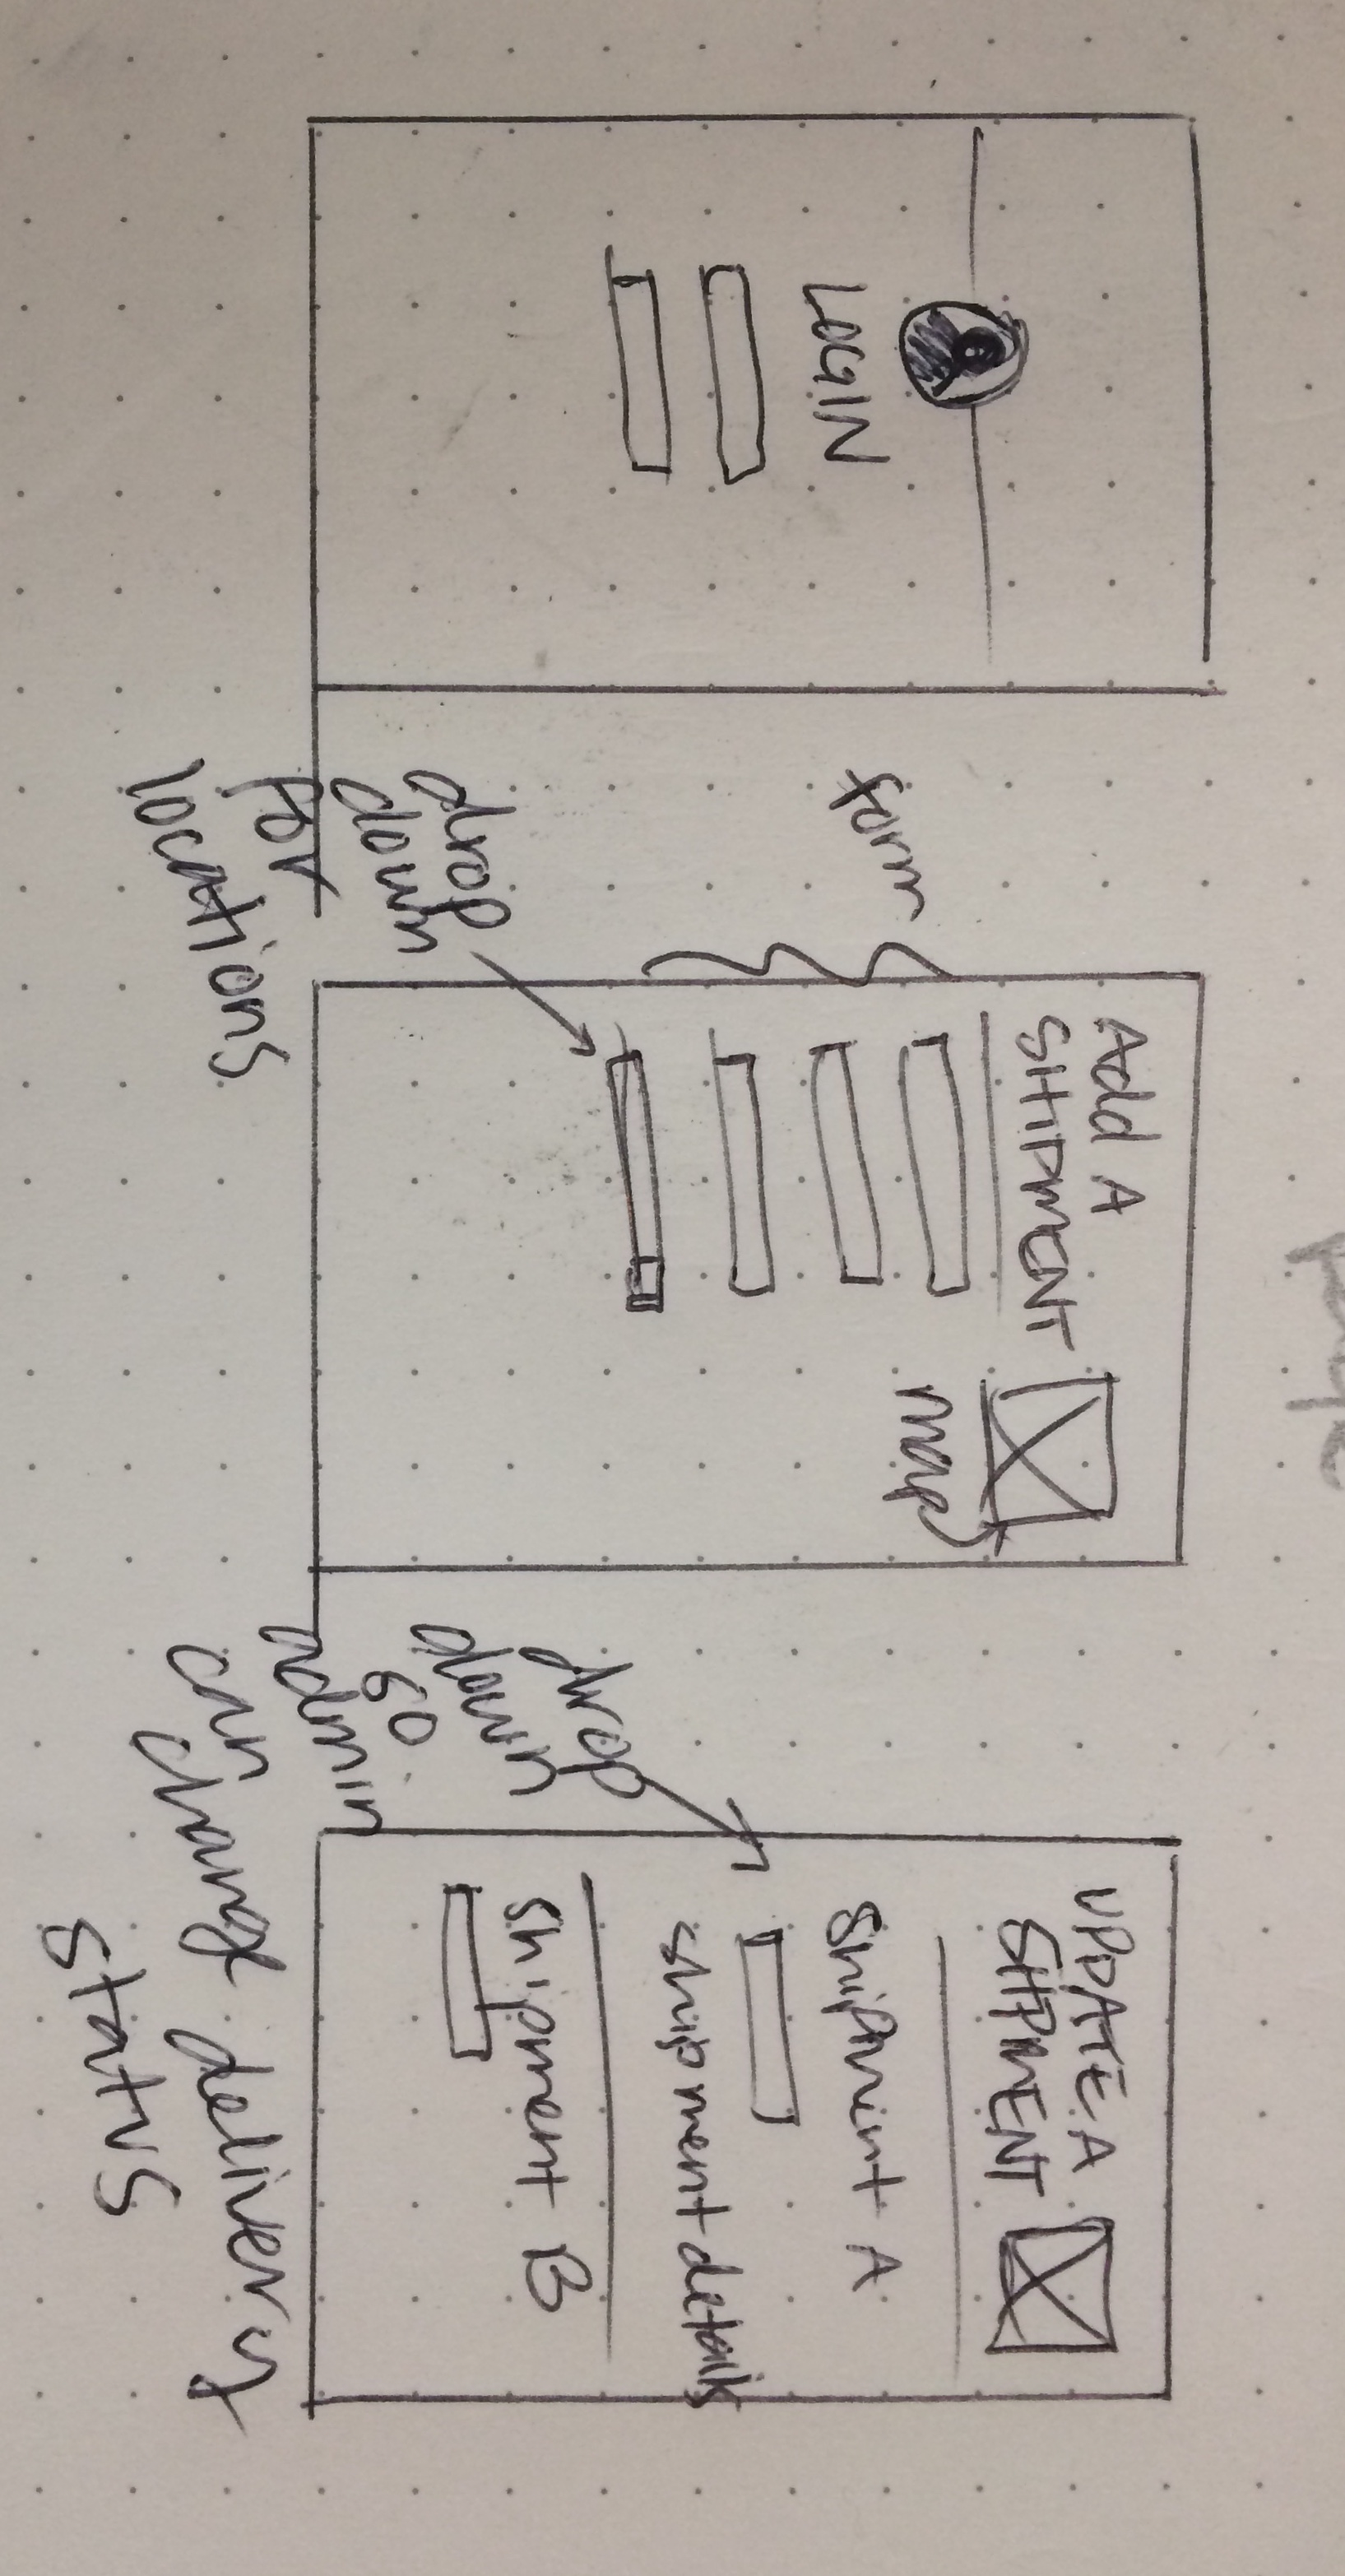 LOGIN
form
drop
down
for
locations
Add A
SHIPMENT
map
drop
down
so
admin
can change delivery
status
UPDATE A
SHIPMENT
Shipment A
shipment details
Shipment B